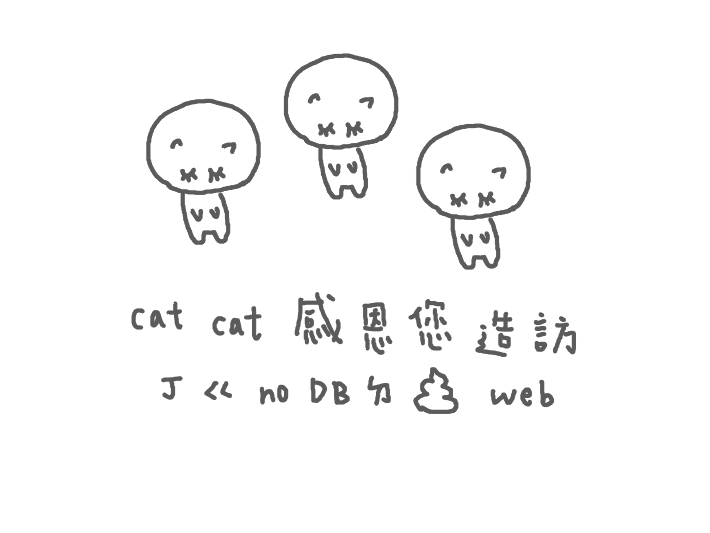 cat cat 感恩您造訪
J ㄍ no DB ㄉ 💩 web